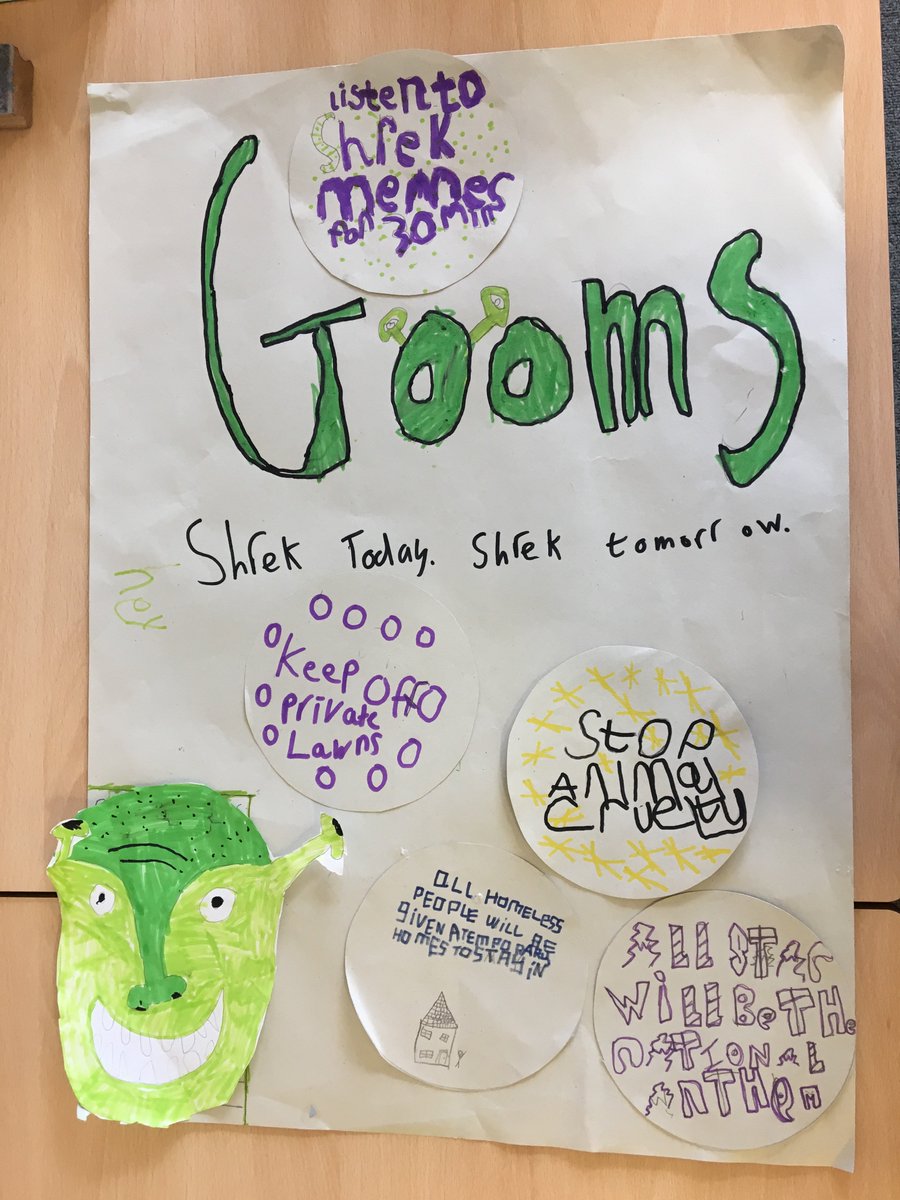 Listen to
Shrek
memes
for 30 min
Gooms
Shrek Today. Shrek tomorrow.
Keep Off
private
Lawns
Stop
Animal
Cruelty
ALL HOMELESS
PEOPLE WILL BE
giVEN A TEMPORARY
HOMES TO STAY iN
All STar
Will Be The
naTIONAL
anTHem